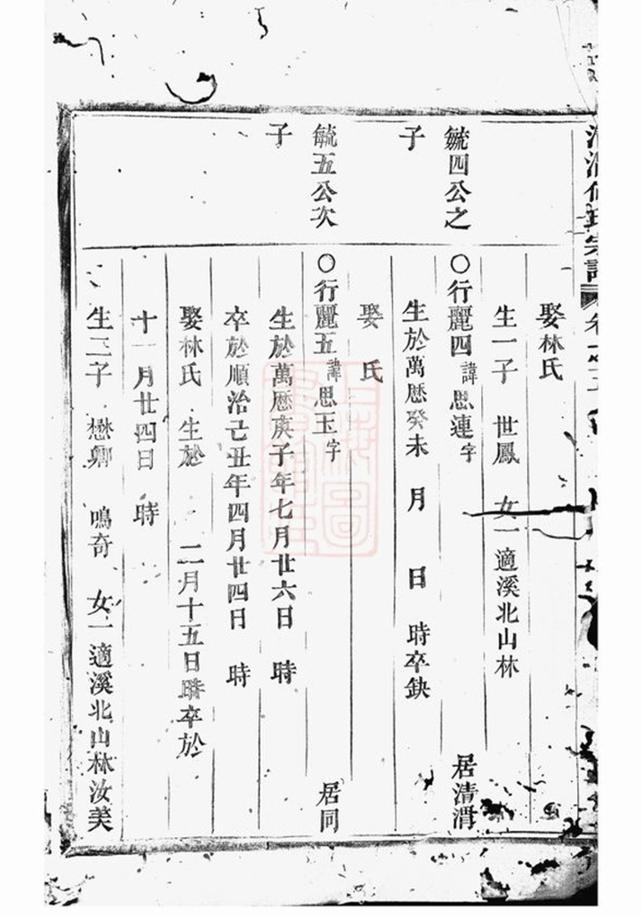 宗譜
娶林氏
生一子 世鳳 女一適溪北山林
毓四公之 ○行麗四諱思連字 居清渭
子 生於萬曆癸未 月 日 時卒缺
娶 氏
毓五公次 ○行麗五諱思玉字 居同
子 生於萬曆庚子年七月廿六日 時
卒於順治己丑年四月廿四日 時
娶林氏 生於 二月十五日時卒於
十一月廿四日 時
生二子 懋卿 鳴奇 女一適溪北山林汝美